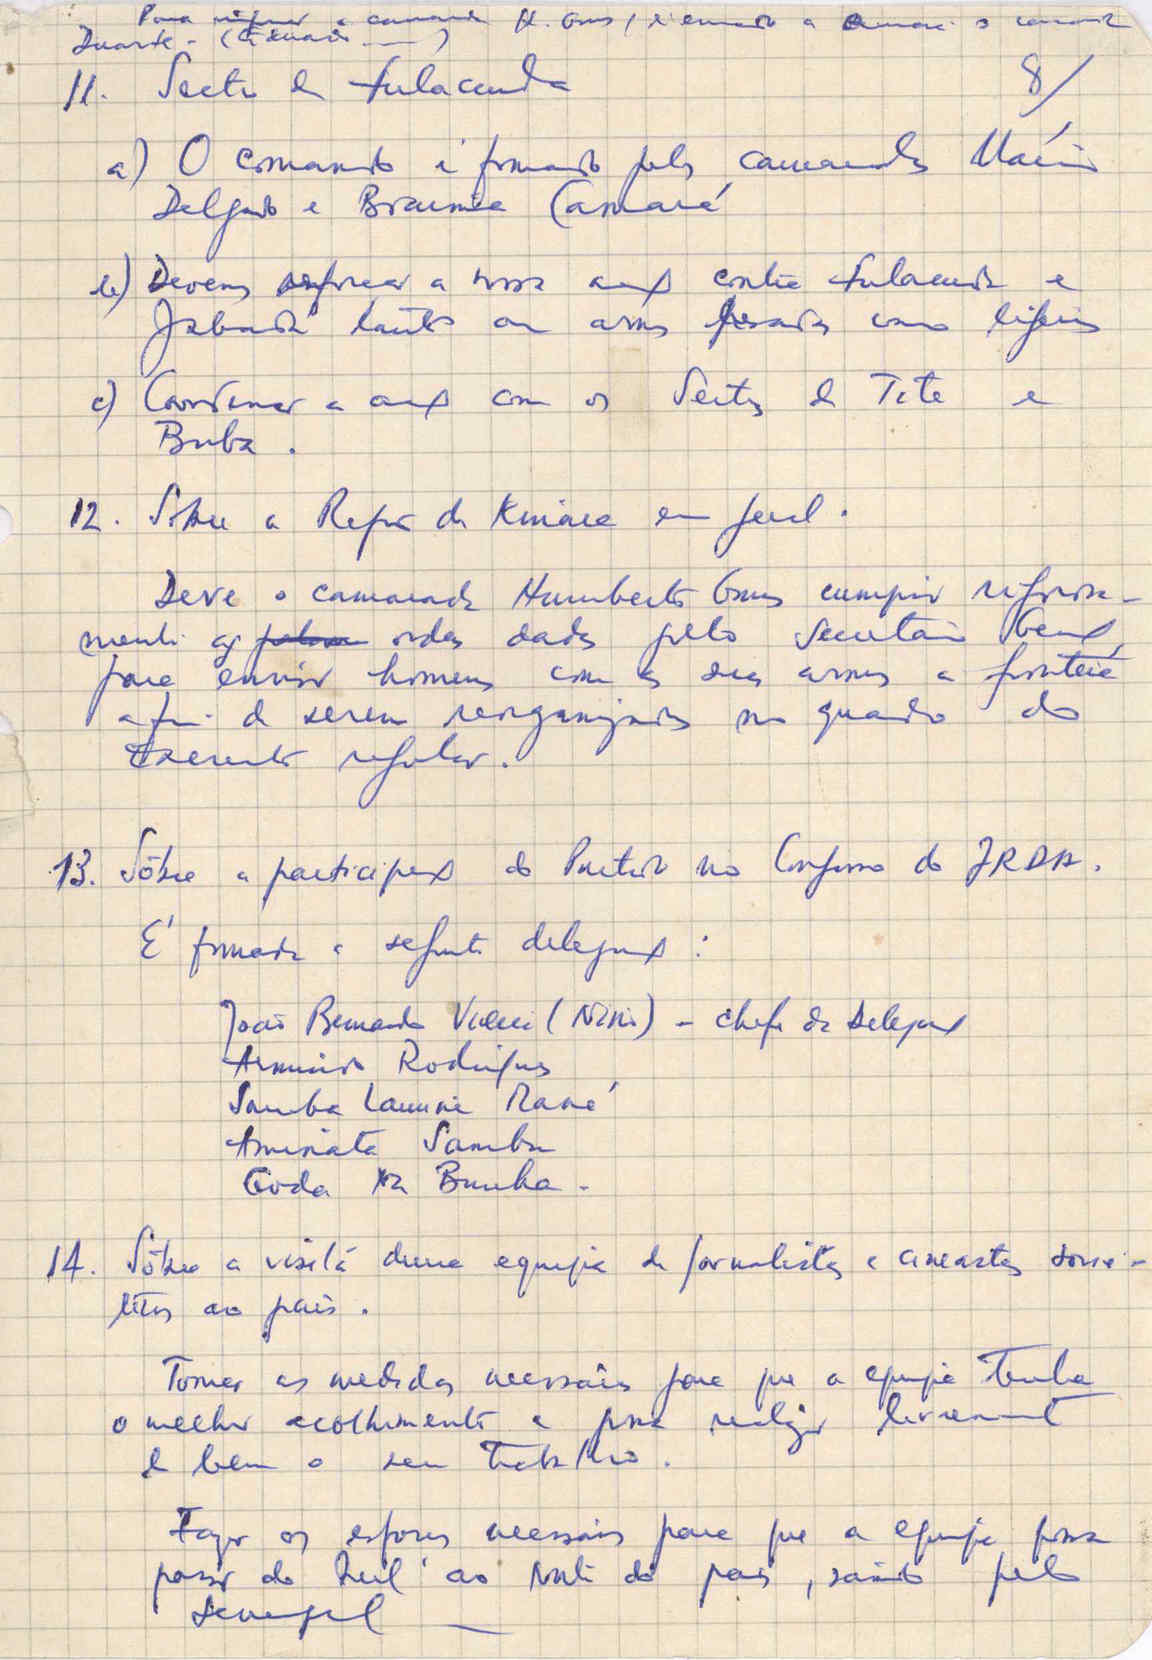 Para a camarada H. Gomes, é enviado a o camarada
Duarte - (
11. Sector de Fulacunda 8/
a) O comando é formado pelos camaradas Mário
Delgado e Braima Camará
b) Devem reforçar a nossa acção contra Fulacunda e
Jabadá tanto com armas pesadas como ligeiras
c) Coordenar a acção com os Sectores de Tite e
Buba.
12. Sôbre a Região de Kinara em geral.
Deve o camarada Humberto Gomes cumprir rigorosa-
mente as ordens dadas pelo Secretário Geral,
para enviar homens com as suas armas a fronteira
afim de serem reorganizados no quadro do
exercito regular.
13. Sôbre a participação do Partido no Congresso do JRDA.
É formada a seguinte delegação:
João Bernardo Vieira (Nino) - chefe da Delegação
Armindo Rodrigues
Samba Lamine Mané
Aminata Samba
Na
14. Sôbre a visita duma equipa de jornalistas e cineastas sovié-
ticos ao país.
Tomar as medidas necessárias para que a equipa tenha
o melhor acolhimento e possa realizar livremente
e bem o seu trabalho.
Fazer os esforços necessários para que a equipa possa
passar do Sul ao Norte do país, saindo pelo
Senegal —